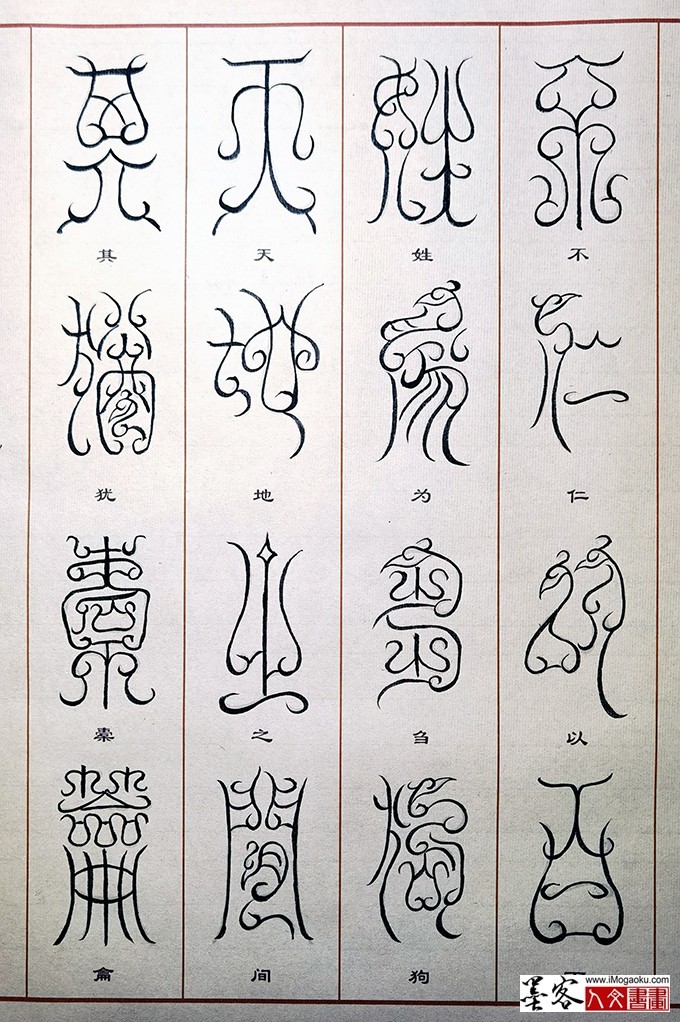 不仁以百
姓为刍狗
天地之间
其犹橐龠
墨客
www.iMogaoku.com
人文書畫